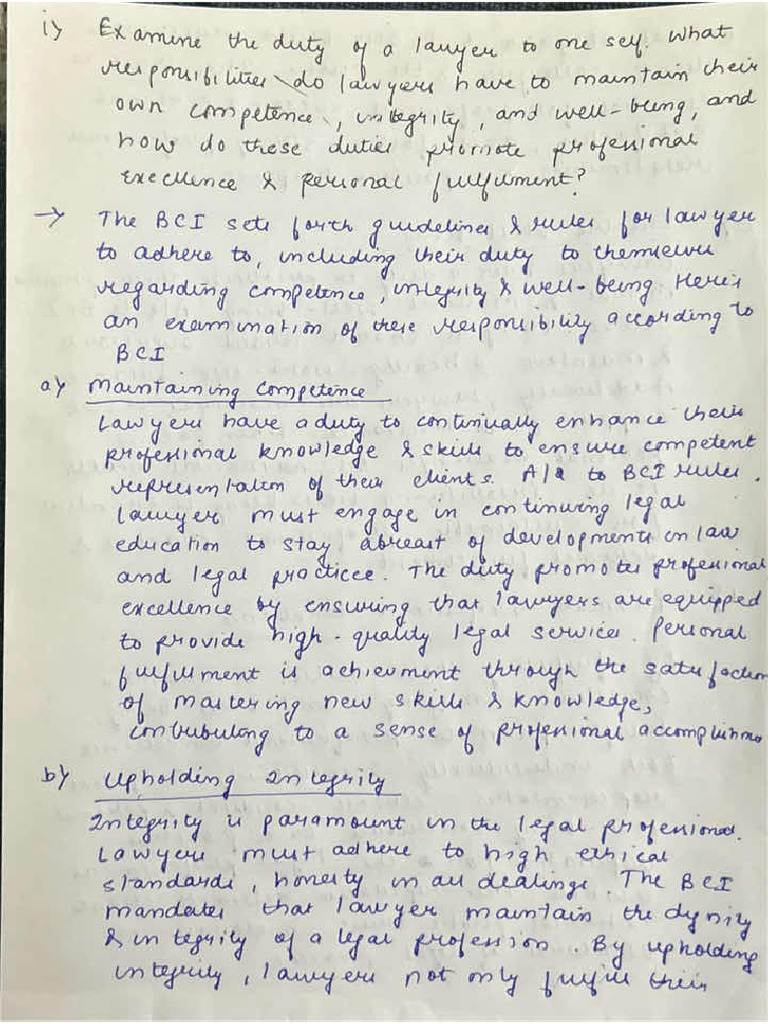 i) Examine the duty of a lawyer to one self. What
responsibilities do lawyers have to maintain their
own competence, integrity, and well-being, and
how do these duties promote professional
excellence & personal fulfilment?
→ The BCI sets forth guidelines & rules for lawyer
to adhere to, including their duty to themselves
regarding competence, integrity & well-being. Here's
an examination of these responsibility according to
BCI
a) Maintaining Competence
Lawyers have a duty to continually enhance their
professional knowledge & skills to ensure competent
representation of their clients. A/q to BCI rules.
lawyer must engage in continuing legal
education to stay abreast of developments in law
and legal practice. The duty promotes professional
excellence by ensuring that lawyers are equipped
to provide high-quality legal service. Personal
fulfilment is achievment through the satisfaction
of mastering new skills & knowledge,
contributing to a sense of professional
b) Upholding Integrity
Integrity is paramount in the legal professional.
Lawyers must adhere to high ethical
standards, honesty in all dealings. The BCI
mandates that lawyer maintain the dignity
& integrity of a legal profession. By upholding
integrity, lawyers not only fulfil their